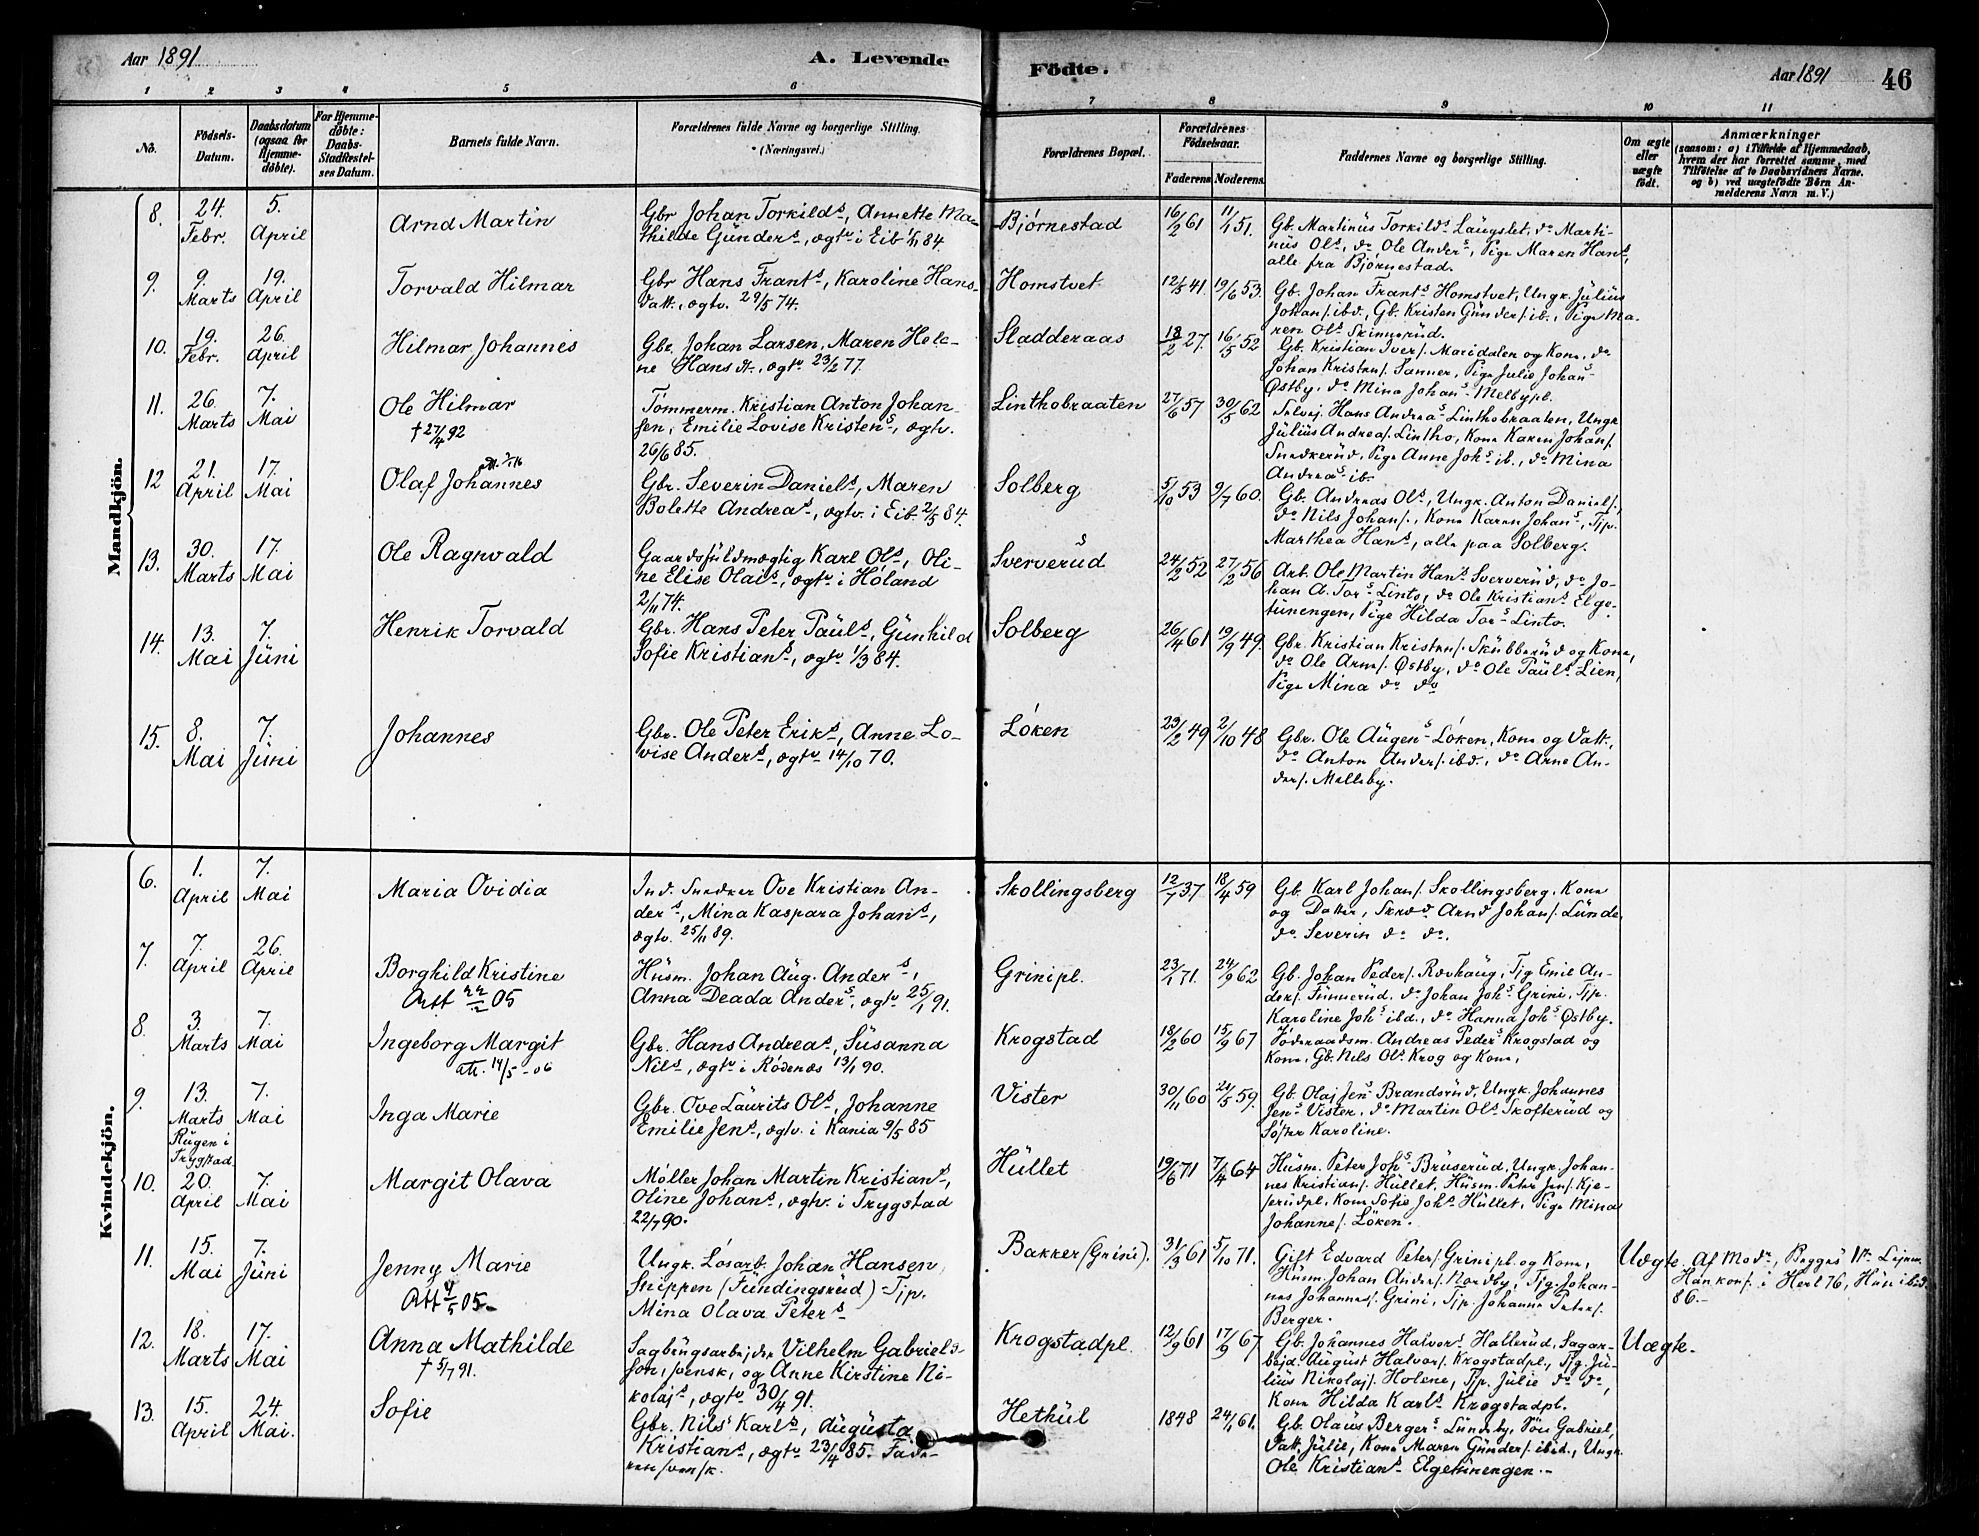 Aar 1891
A. Levende
Födte.
Aar 1891
46
1 2 3 4 5 6 7 8 9 10 11
No.
Födsels-Datum.
Daabsdatum (ogsaa for Hjemme-döbte).
For Hjemme-döbte: Daabs-Stadfæstel-ses Datum.
Barnets fulde Navn.
Forældrenes fulde Navne og borgerlige Stilling.
(Næringsvei.)
Forældrenes Bopæl.
Forældrenes Födselsaar.
Faderens Moderens
Faddernes Navne og borgerlige Stilling.
Om ægte eller uægte födt.
Anmærkninger
(saasom: a) i Tilfælde af Hjemmedaab,
hvem der har forrettet samme, med
Tilföielse af to Daabsvidners Navne.
og b) ved uægtefödte Börn An-
melderens Navn m. V.)
Mandkjön.
8. 24. Febr. 5. April
Arnd Martin
Gbr Johan Torkilds, Annette Ma-
thilde Günders, ægtv i Eib 84
Bjørnestad
16/2 61 11/1 51.
Gb. Martinüs Torkilds Laügslet, do Marti-
nüs Ols, do Ole Anders, Pige Maren Hans,
alle fra Bjørnestad.
9. 9. Marts 19. April
Torvald Hilmar
Gbr Hans Frants, Karoline Hans-
datt., ægtv. 29/5 74.
Homstvet
12/5 41. 19/6 53.
Gb. Johan Frants Homstvet, Ungk. Jülius
Johans. ibd., Gb. Kristen Günders. ib., Pige Ma-
ren Ols Skinnerüd.
10. 19. Febr. 26. April
Hilmar Johannes
Gbr. Johan Larsen, Maren Hele-
ne Hansdt., ægtv 23/2 77.
Sladderaas
18/2 27. 16/5 52
Gb. Kristian Ivers. Maridalen og Kone, do
Johan Kristens. Sanner, Pige Julie Johans
Østby, do Mina Johans Melbypl.
11. 26. Marts 7. Mai
Ole Hilmar
† 27/4 92
Tømmerm. Kristian Anton Johan-
sen, Emilie Lovise Kristens, ægtv.
26/6 85.
Linthobraaten
27/6 57 30/5 62
Selvej. Hans Andreas Linthobraaten, Ungk
Jülius Andreas. Lintho, Kone Karen Johans.
Snekkerüd, Pige Anne Johs ib., do Mina
Andreas ib.
12 21. April 17. Mai
Olaf Johannes
Gbr. Severin Daniels, Maren
Bolette Andreas, ægtv. i Eib. 2/5 84.
Solberg
5/10 53 9/7 60.
Gb. Andreas Ols, Ungk. Anton Daniels.,
do Nils Johans., Kone Karen Johans, Tjp.
Marthea Hans, alle paa Solberg.
13. 30. Marts 17. Mai
Ole Ragnvald
Gaardsfüldmægtig Karl Ols, Oli-
ne Elise Olais, ægtv i Høland
2/11 74.
Sververüd
24/2 52 27/2 56
Arb. Ole Martin Hans Sververüd, do Jo-
han A. Tors Linto, do Ole Kristians Elge-
tünengen, Pige Hilda Tors Linto.
14. 13. Mai 7. Jüni
Henrik Torvald
Gbr. Hans Peter Paüls, Günhild
Sofie Kristians, ægtv. 1/3 84.
Solberg
26/4 61 19/9 49.
Gbr. Kristian Kristens. Skübberüd og Kone,
do Ole Arnes. Østby, do Ole Paüls Lien,
Pige Mina do do
15. 8. Mai 7. Jüni
Johannes
Gbr. Ole Peter Eriks, Anne Lo-
vise Anders, ægtv 14/10 70.
Løken
23/2 49 2/10 48
Gbr. Ole Aügens Løken, Kone og Datt.,
do Anton Anders. ibd., do Arne An-
ders. Melleby.
Kvindekjön.
6. 1. April 7. Mai
Maria Ovidia
Ind. Snedker Ove Kristian An-
ders, Mina Kaspara Johans,
ægtv. 25/11 89.
Skollingsberg
12/7 37 18/4 59
Gb. Karl Johans. Skollingsberg, Kone
og Datter, Skræd Arnd Johans. Lünde,
do Severin do do.
7. 7. April 26. April
Borghild Kristine
Att 22/2 05
Hüsm. Johan Aüg. Anders,
Anna Deada Anders, ægtv 25/1 91.
Grinipl.
23/1 71. 24/9 62
Gb. Johan Peders. Rævhaüg, Tjg Emil An-
ders. Finnerüd, do Johan Johs Grini, Tjp.
Karoline Johs ibd., do Hanna Johs Østby.
8. 3. Marts 7. Mai
Ingeborg Margit
Att. 14/5 - 06
Gbr. Hans Andreas, Süsanna
Nils, ægtv i Rødenæs 13/1 90.
Krogstad
18/2 60 15/9 67
Føderaadsm. Andreas Peders Krogstad og
Kone, Gb. Nils Ols Krog og Kone,
9. 13. Marts 7. Mai
Rügen i Trygstad
Inga Marie
Gbr. Ove Laürits Ols, Johanne
Emilie Jens, ægtv. i Kania 9/5 85
Vister
30/11 60 21/5 59.
Gb. Olaj Jens Brandsrüd, Ungk. Johannes
Jens Vister, do Martin Ols Skofterüd og
Søster Karoline.
10. 20. April 7. Mai
Margit Olava
Møller Johan Martin Kristians,
Oline Johans, ægtv. i Trygstad
22/7 90.
Hüllet
19/6 71 7/4 64
Hüsm. Peter Johs Brüserüd, Ungk. Johan-
nes Kristians. Hüllet, Hüsm. Peter Jens. Kje-
serüdpl, Kone Sofie Johs Hüllet, Pige Mina
Johannes. Løken.
11. 15. Mai 7. Jüni
Jenny Marie
Att 4/5 05
Ungk. Løsarb. Johan Hansen
Snippen (Fündingsrüd) - Tjp.
Mina Olava Peters
Bakker (Grini).
31/3 61 5/10 71.
Gift Edvard Peters. Grinipl. og Kone,
Hüsm. Johan Anders. Nordby, Tjg. Johan-
nes Johannes. Grini, Tjp. Johanne Peters.
Berger.
Uægte
Af Modr, Begges 1ste Lejerm.
Han konf. i Herl 76, Hün ibd
86.
12. 18. Marts 17. Mai
Anna Mathilde
† 5/7 91.
Sagbrügsarbejder Vilhelm Gabriels-
son, svensk, og Anne Kirstine Ni-
kolajs, ægtv 30/4 91.
Krogstadpl.
12/9 61 17/9 67
Gb. Johannes Halvors Hallerüd, Sagar-
bejd. Aügüst Halvors. Krogstadpl., Tjg. Jü-
liüs Nikolajs. Holene, Tjp. Julie do do,
Kone Hilda Karls Krogstadpl.
Uægte.
13. 15. April 24. Mai.
Sofie
Gbr. Nils Karls, Aügüsta
Kristians, ægtv 23/4 85. Fade-
ren svensk.
Hethül
1848 24/1 61.
Gb. Olaüs Bergers Lündeby, Søn Gabriel,
Datt. Jülie, Kone Maren Günders. ibid., Ungk.
Ole Kristians Elgetünengen.